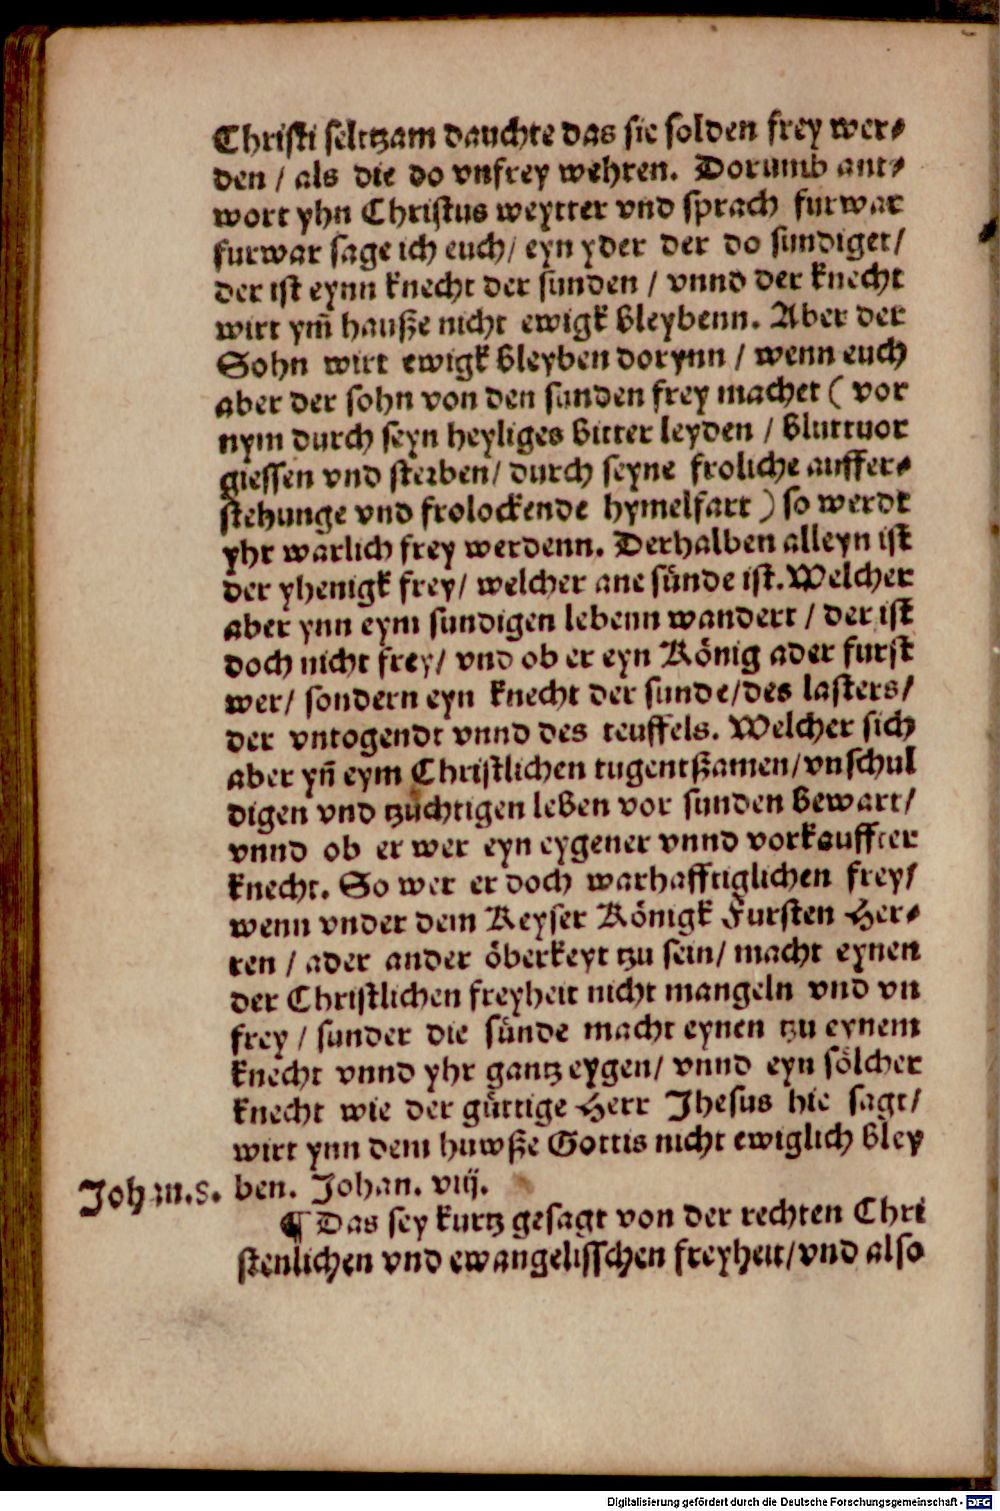 Christi seltzam dauchte das sie solden frey wer⸗
den / als die do vnfrey wehren. Dorumb ant⸗
wort yhn Christus weytter vnd sprach furwar
furwar sage ich euch/ eyn yder der do sundiget/
der ist eynn knecht der sunden / vnnd der knecht
wirt ym̄ hauße nicht ewigk bleybenn. Aber der
Sohn wirt ewigk bleyben dorynn / wenn euch
aber der sohn von den sunden frey machet ( vor
nym durch seyn heyliges bitter leyden / bluttuor
giessen vnd sterben/ durch seyne froliche auffer⸗
stehunge vnd frolockende hymelfart ) so werdt
yhr warlich frey werdenn. Derhalben alleyn ist
der yhenigk frey/ welcher ane sünde ist. Welcher
aber ynn eym sundigen lebenn wandert / der ist
doch nicht frey/ vnd ob er eyn König ader furst
wer/ sondern eyn knecht der sunde/des lasters/
der vntogendt vnnd des teuffels. Welcher sich
aber yn̄ eym Christlichen tugentßamen/vnschul
digen vnd tzüchtigen leben vor sunden bewart/
vnnd ob er wer eyn eygener vnnd vorkauffter
knecht. So wer er doch warhafftiglichen frey/
wenn vnder dem Keyser Königk Fursten Her⸗
ren / ader ander öberkeyt tzu sein/ macht eynen
der Christlichen freyheit nicht mangeln vnd vn
frey / sunder die sünde macht eynen tzu eynem
knecht vnnd yhr gantz eygen/ vnnd eyn sölcher
knecht wie der güttige Herr Jhesus hie sagt/
wirt ynn dem huwße Gottis nicht ewiglich bley
Joh an. 8. ben. Johan. viij.
¶ Das sey kurtz gesagt von der rechten Chri
stenlichen vnd ewangelisschen freyheit/vnd also
Digitalisierung gefördert durch die Deutsche Forschungsgemeinschaft - DFG